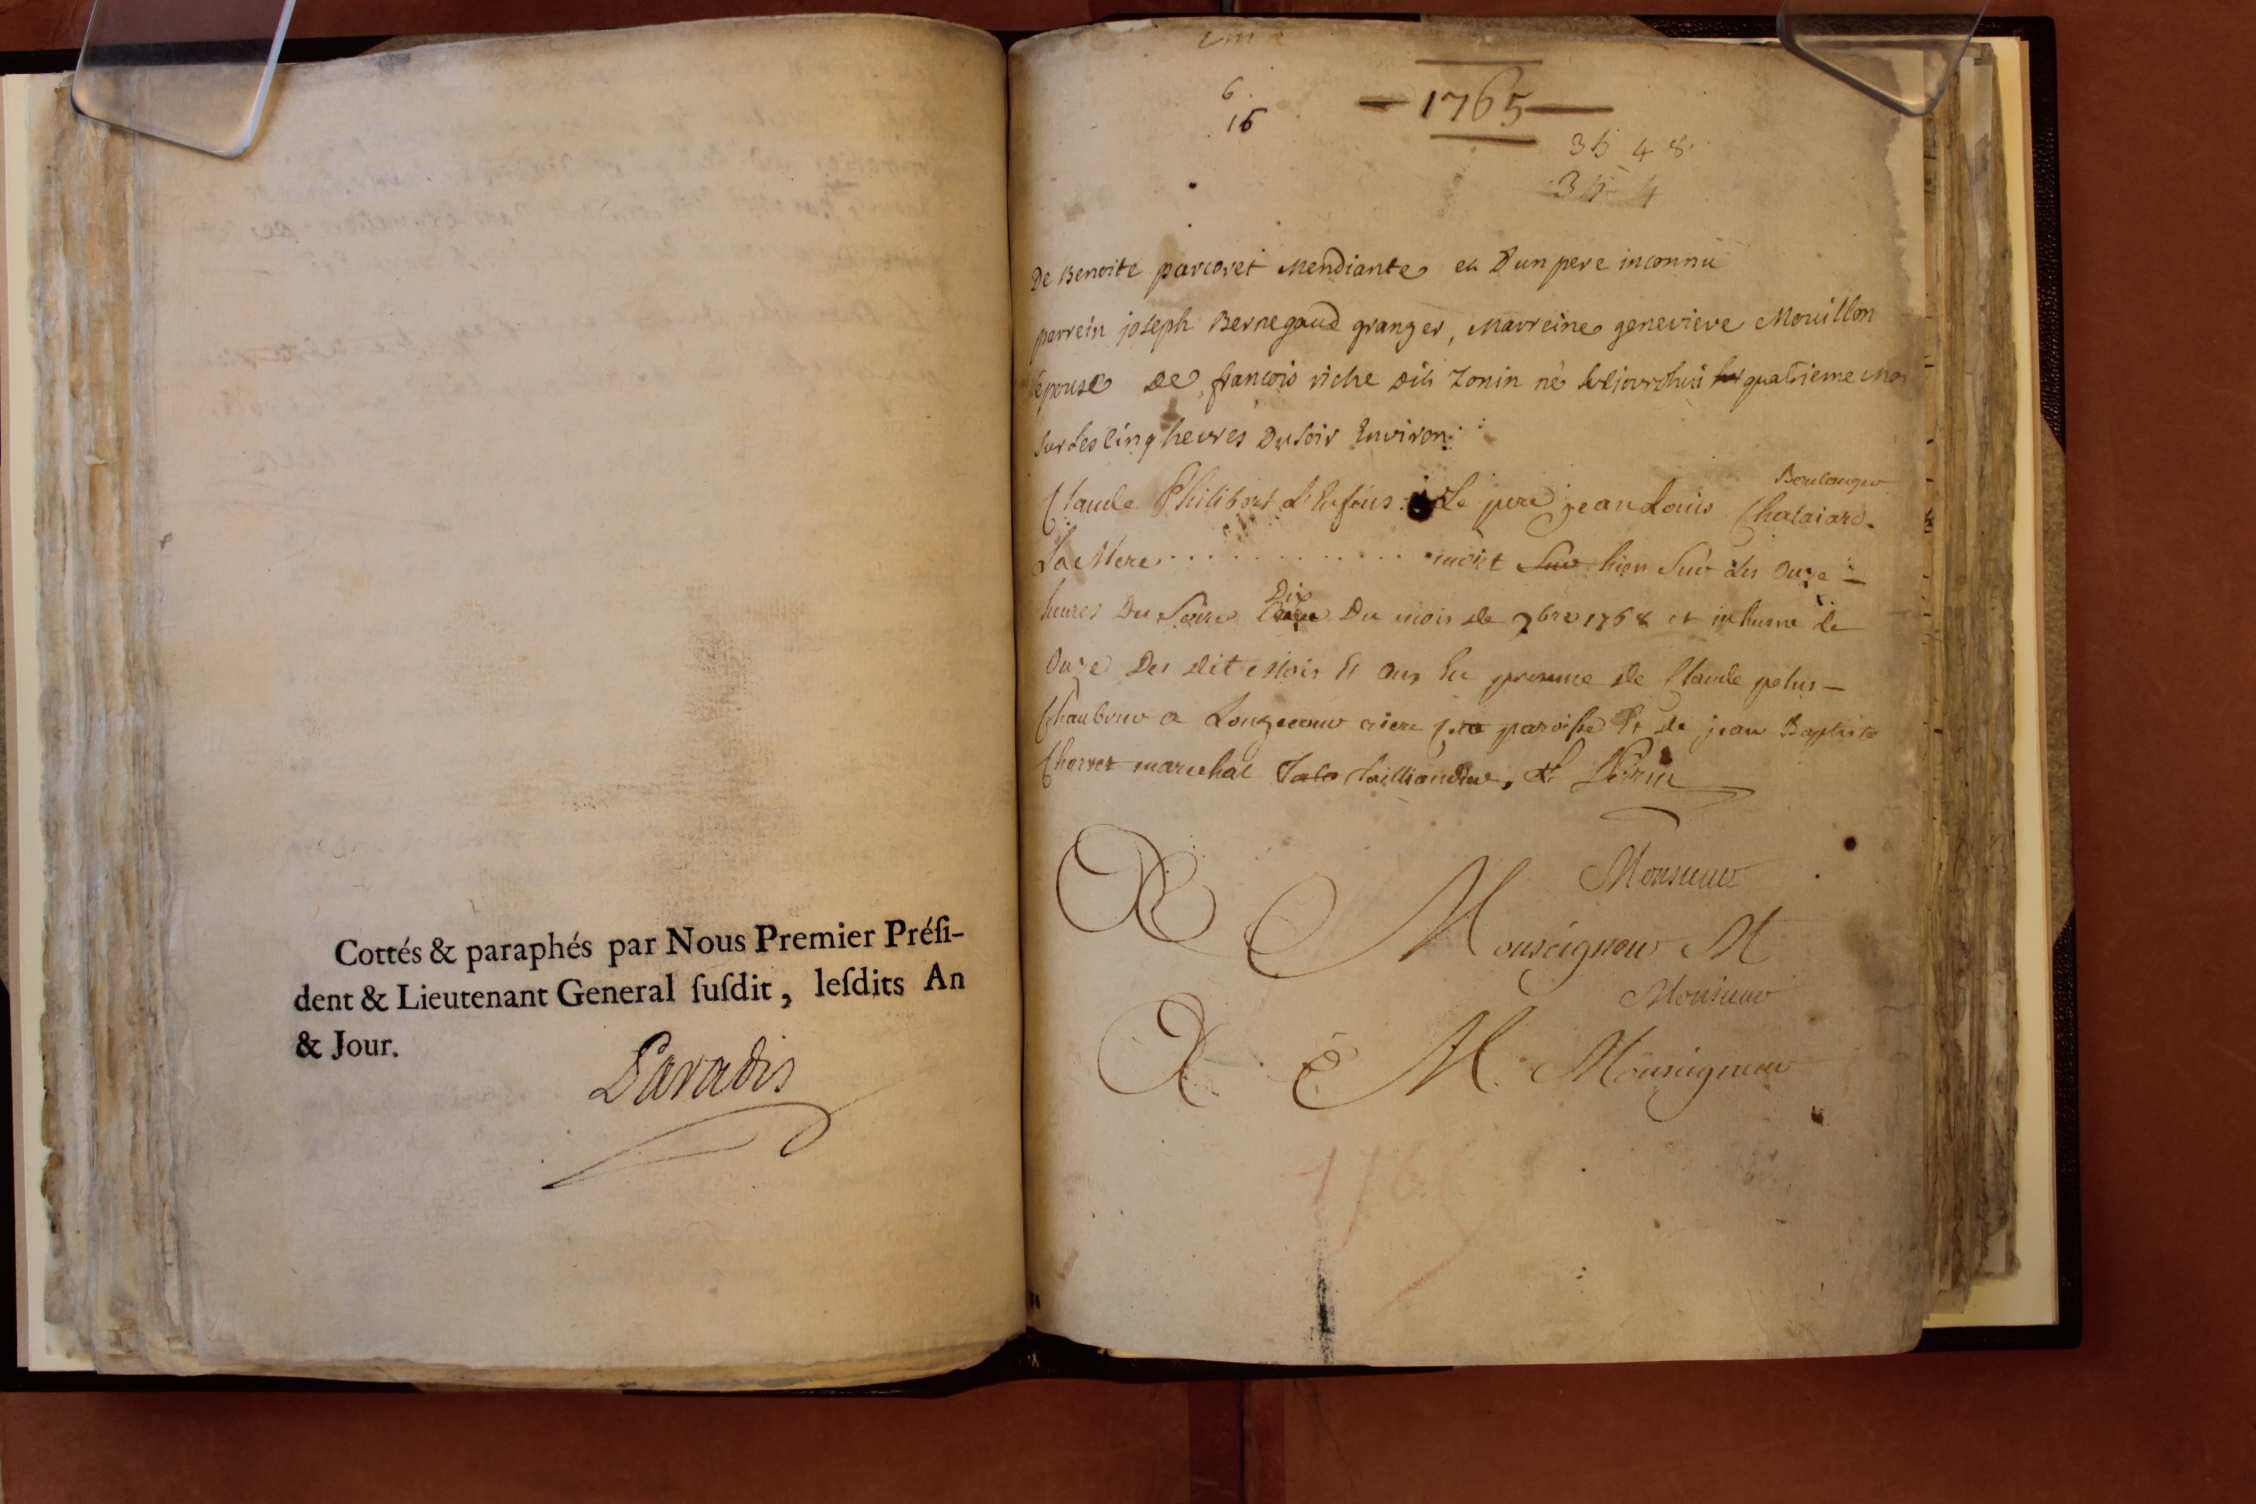 Cottés & paraphés par Nous Premier Préſi-
dent & Lieutenant General ſuſdit, leſdits An
& Jour.
Paradis
6
16
1765
De Benoite parcoret Mendiante et D'un pere inconnu
parrein joseph Bernegaud granger, Marreine genevieve Mouillon
épouse de francois riche dit Zonin né quatrieme
sur les cinq heures Du soir Environ
Boulanger
Claude Philibert le pere jean Louis Chalaiard.
La Mere mort Sur hier Sur les onze
Dix
heures Du Soire Du mois de 1768 et inhume le
Onze Des dit Mois Et ans En presence de Claude
a paroisse Et de jean Baptiste
marechal Taillandier, Perrin
Monsieur
Monseigneur M
Monsieur
M. Monseigneur
176